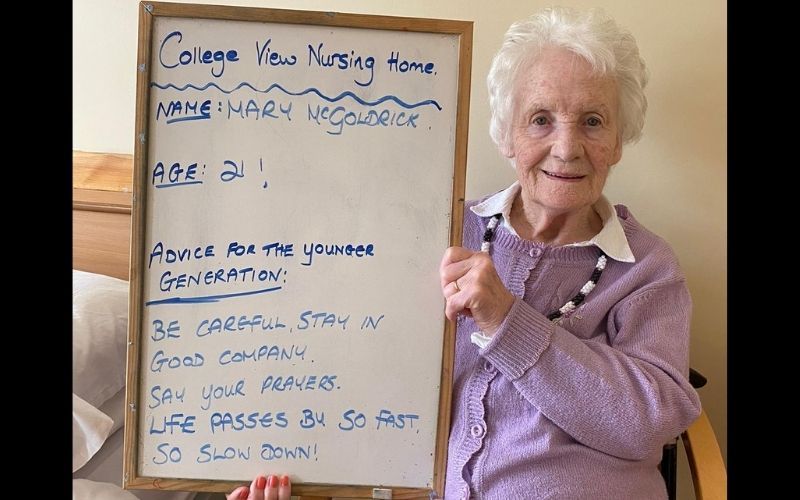 College View Nursing Home.
NAME: MARY McGOLDRICK.
AGE: 21!
ADVICE FOR THE YOUNGER
GENERATION:
BE CAREFUL, STAY IN
GOOD COMPANY.
SAY YOUR PRAYERS.
LIFE PASSES BY SO FAST,
SO SLOW DOWN!